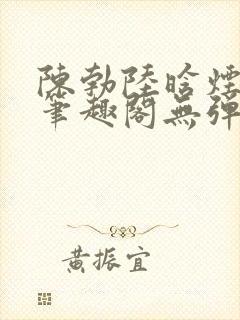 陳勃陸晗煙
筆趣閣無彈
黃振宜